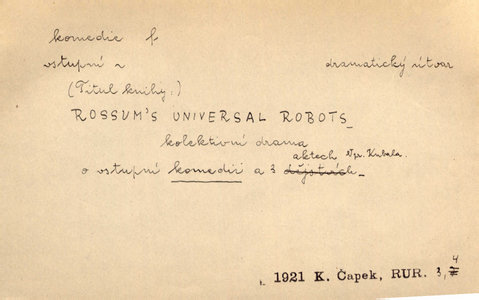 komedie f.
vstupní ~ dramatický útvar
(Titul knihy:)
ROSSUM'S UNIVERSAL ROBOTS_
kolektivní drama
aktech Vyr. Kubala.
o vstupní komedii a 3 dějstvích_
1921 K. Čapek, RUR. 3, 4